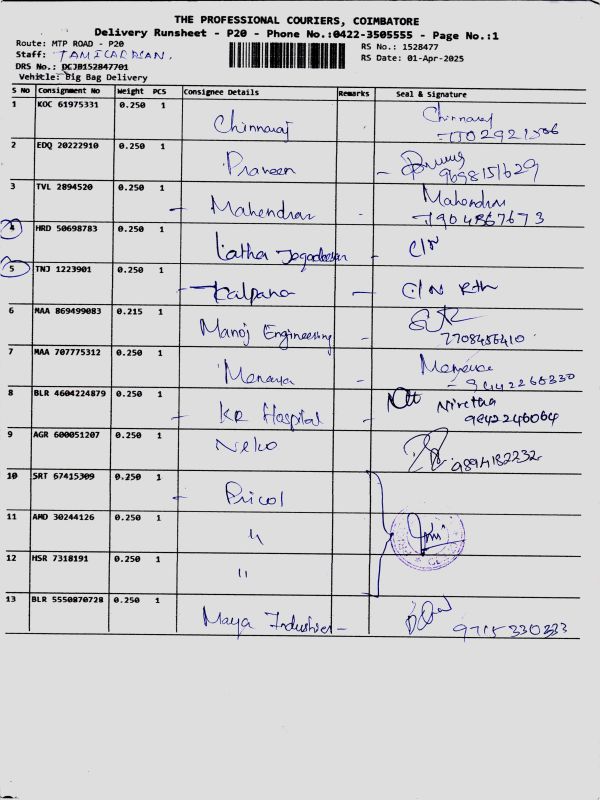 THE PROFESSIONAL COURIERS, COIMBATORE
Delivery Runsheet - P20 - Phone No.:0422-3505555 - Page No.:1
Route: MTP ROAD - P20
RS No.: 1528477
Staff:
DRS No.: DCJB152847701
RS Date: 01-Apr-2025
Vehicle: Big Bag Delivery
S No Consignment No Weight PCS Consignee Details Remarks Seal & Signature
1 KOC 61975331 0.250 1 Chinnaraj Chinnaraj
2 EDQ 20222910 0.250 1 Praveen - 9698151629
3 TVL 2894520 0.250 1 - Mahendran - Mahendran
7904867673
4 HRD 50698783 0.250 1 Latha Jegadeesan - C/N
5 TNJ 1223901 0.250 1 - Kalpana - C/N Rth
6 MAA 869499083 0.215 1 Manoj Engineering -
7708456410
7 MAA 707775312 0.250 1 Menaya -
- 9442266330
8 BLR 4604224879 0.250 1 - KR Hospital - Nivetha
9842246064
9 AGR 600051207 0.250 1 Neko 9894182232
10 SRT 67415309 0.250 1 - Pricol
11 AMD 30244126 0.250 1 "
12 HSR 7318191 0.250 1 "
13 BLR 5550870728 0.250 1 Maya Industries -
9715330333